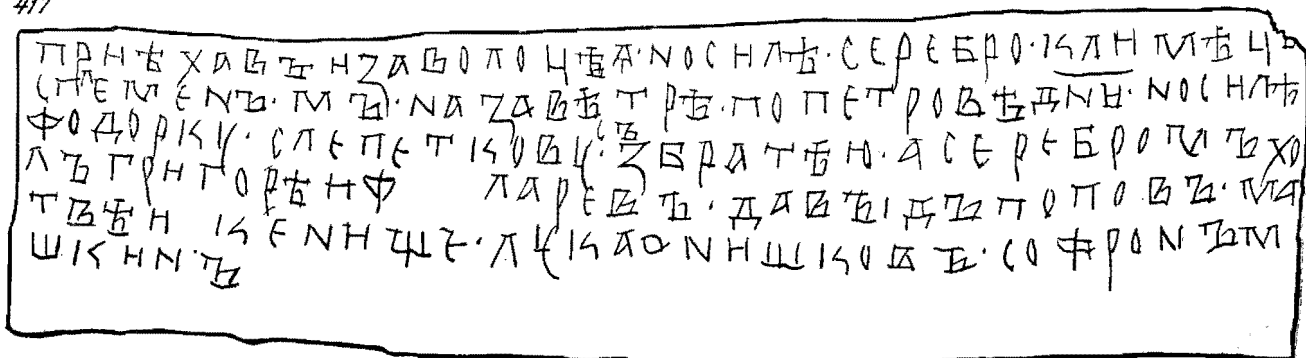 417
приѣхавъизаволоцѣа·носилѣ·серебро·климѣцъ
сплеменъ·мъ·назавѣтрѣ·попетровѣдни·носилѣ
фодорку·слепеткову·съ збратѣю·асеребромъхо
лъгригорѣиф ларевъ·давъıдъпоповъ·ма
твѣи кенище·лукаонишковъ·софронъм
шкин·ъ